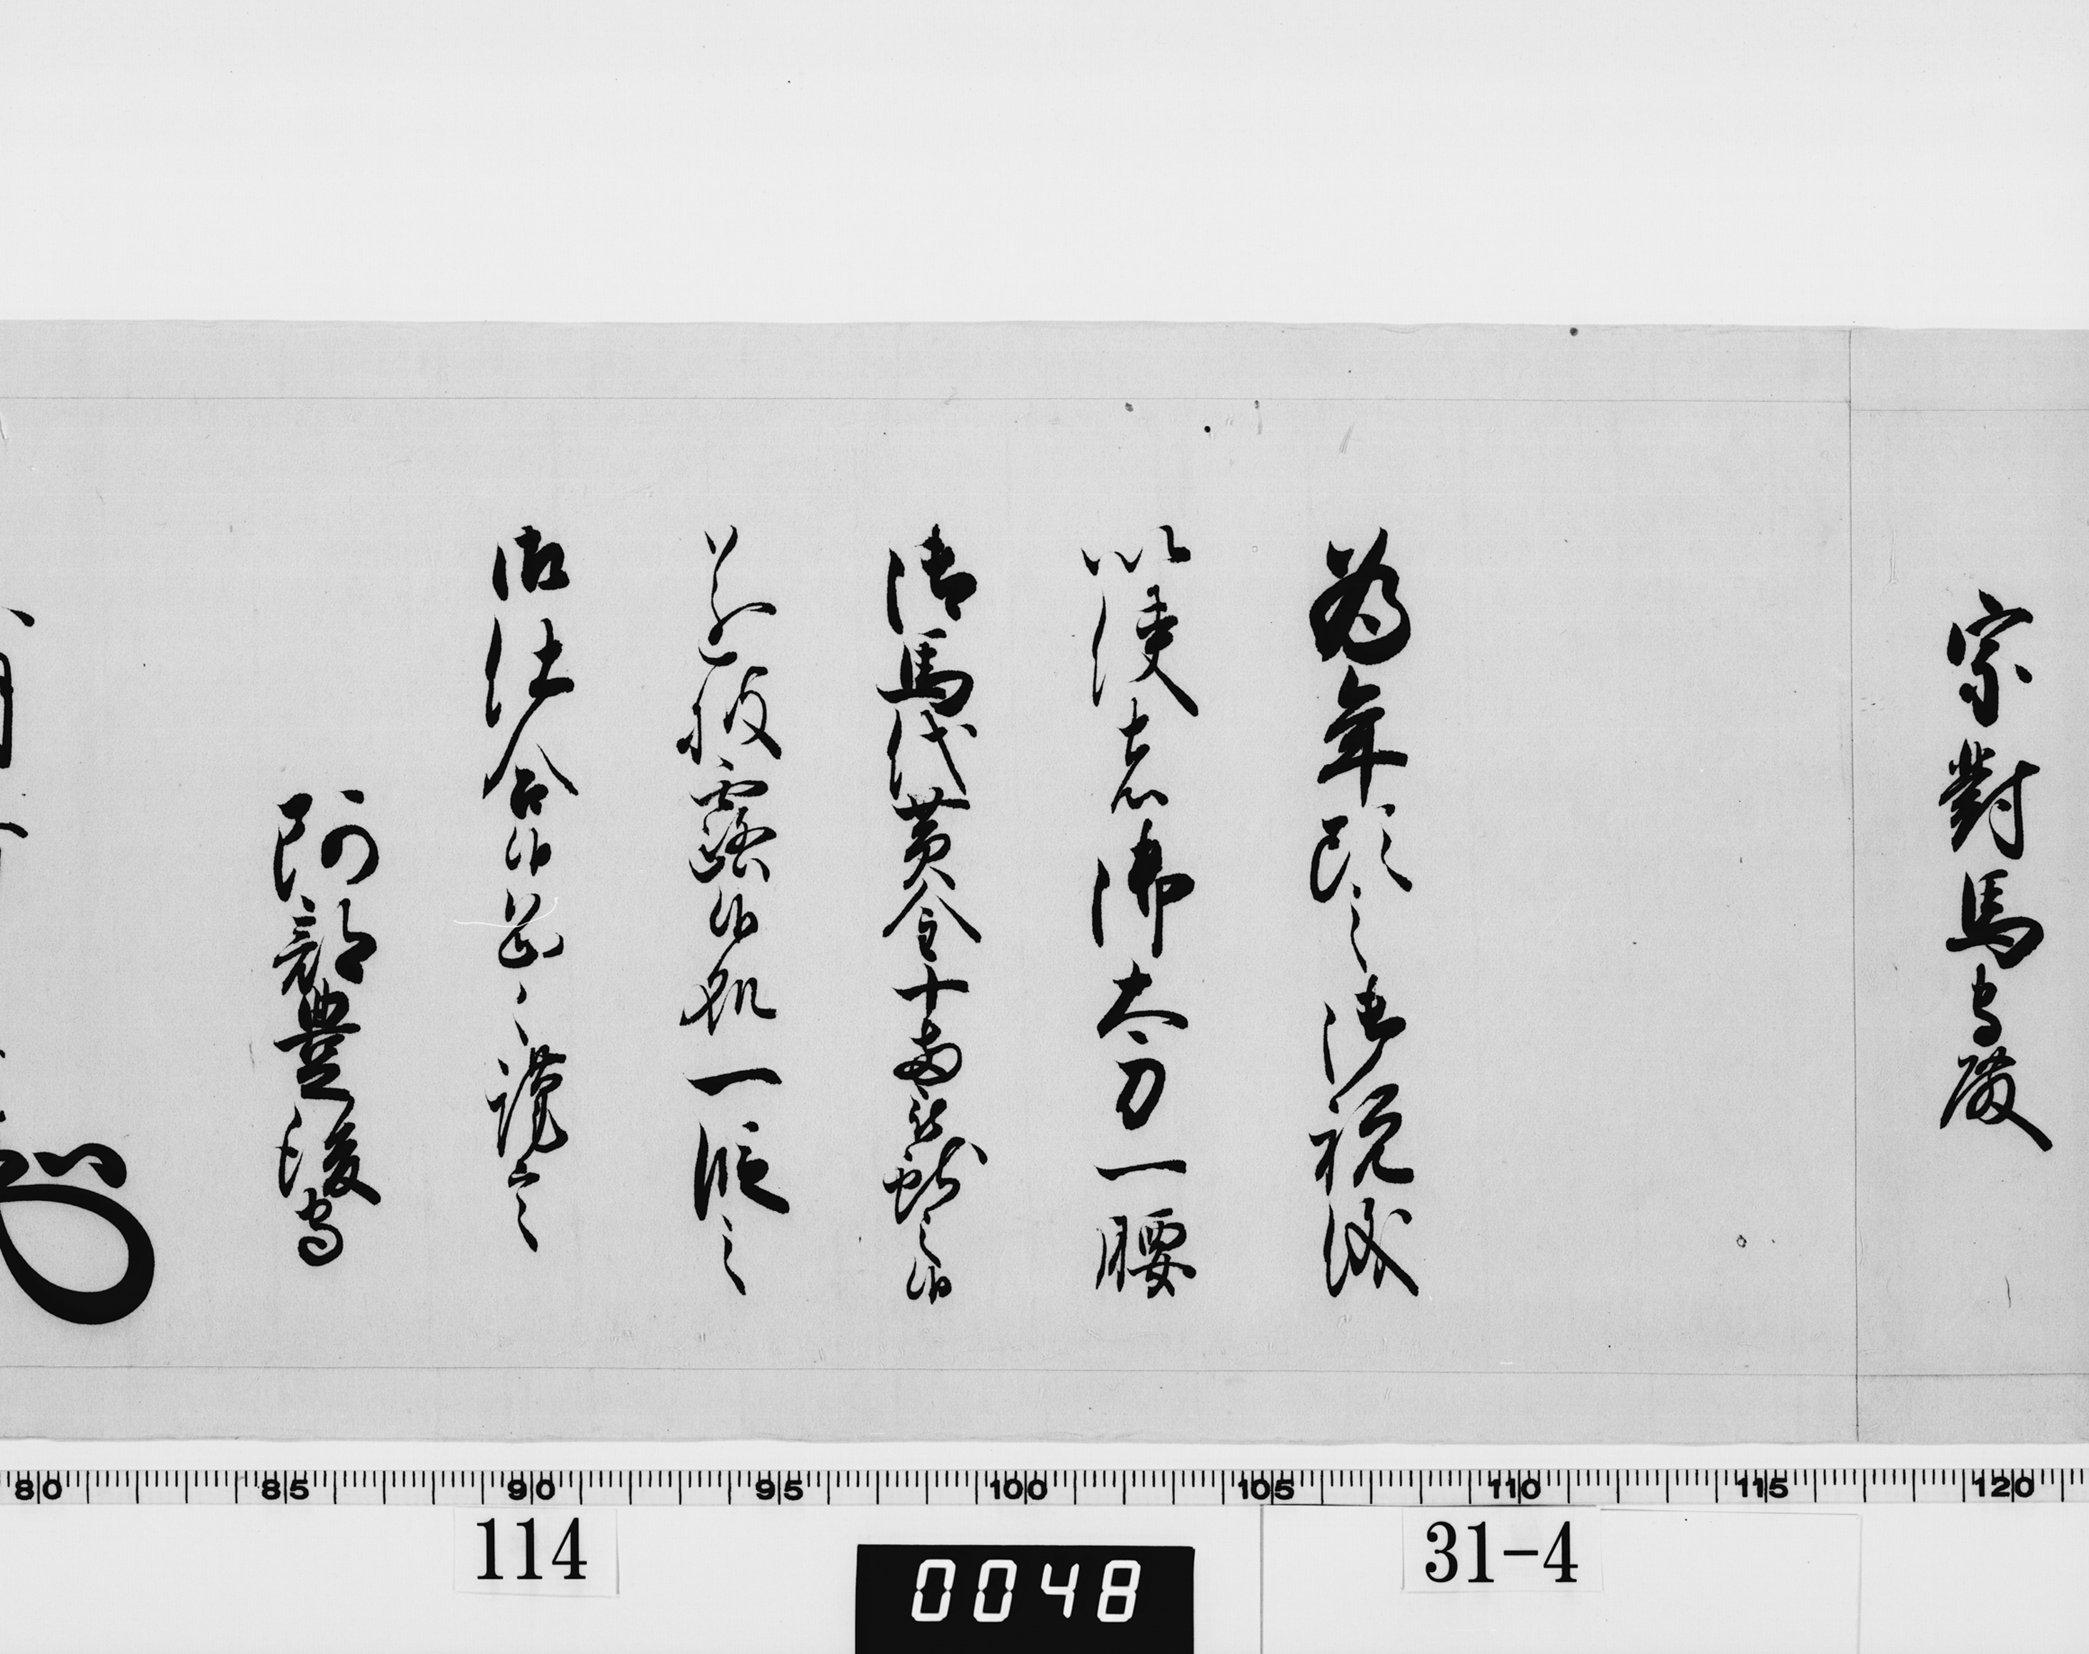 宗對馬守殿
為年頭之御祝儀
以使者御太刀一腰
御馬代黄金十両被献之候
遂披露候処一段之
御仕合候恐々謹言
阿部豊後守
80 85 90 95 100 105 110 115 120
114
0048
31-4